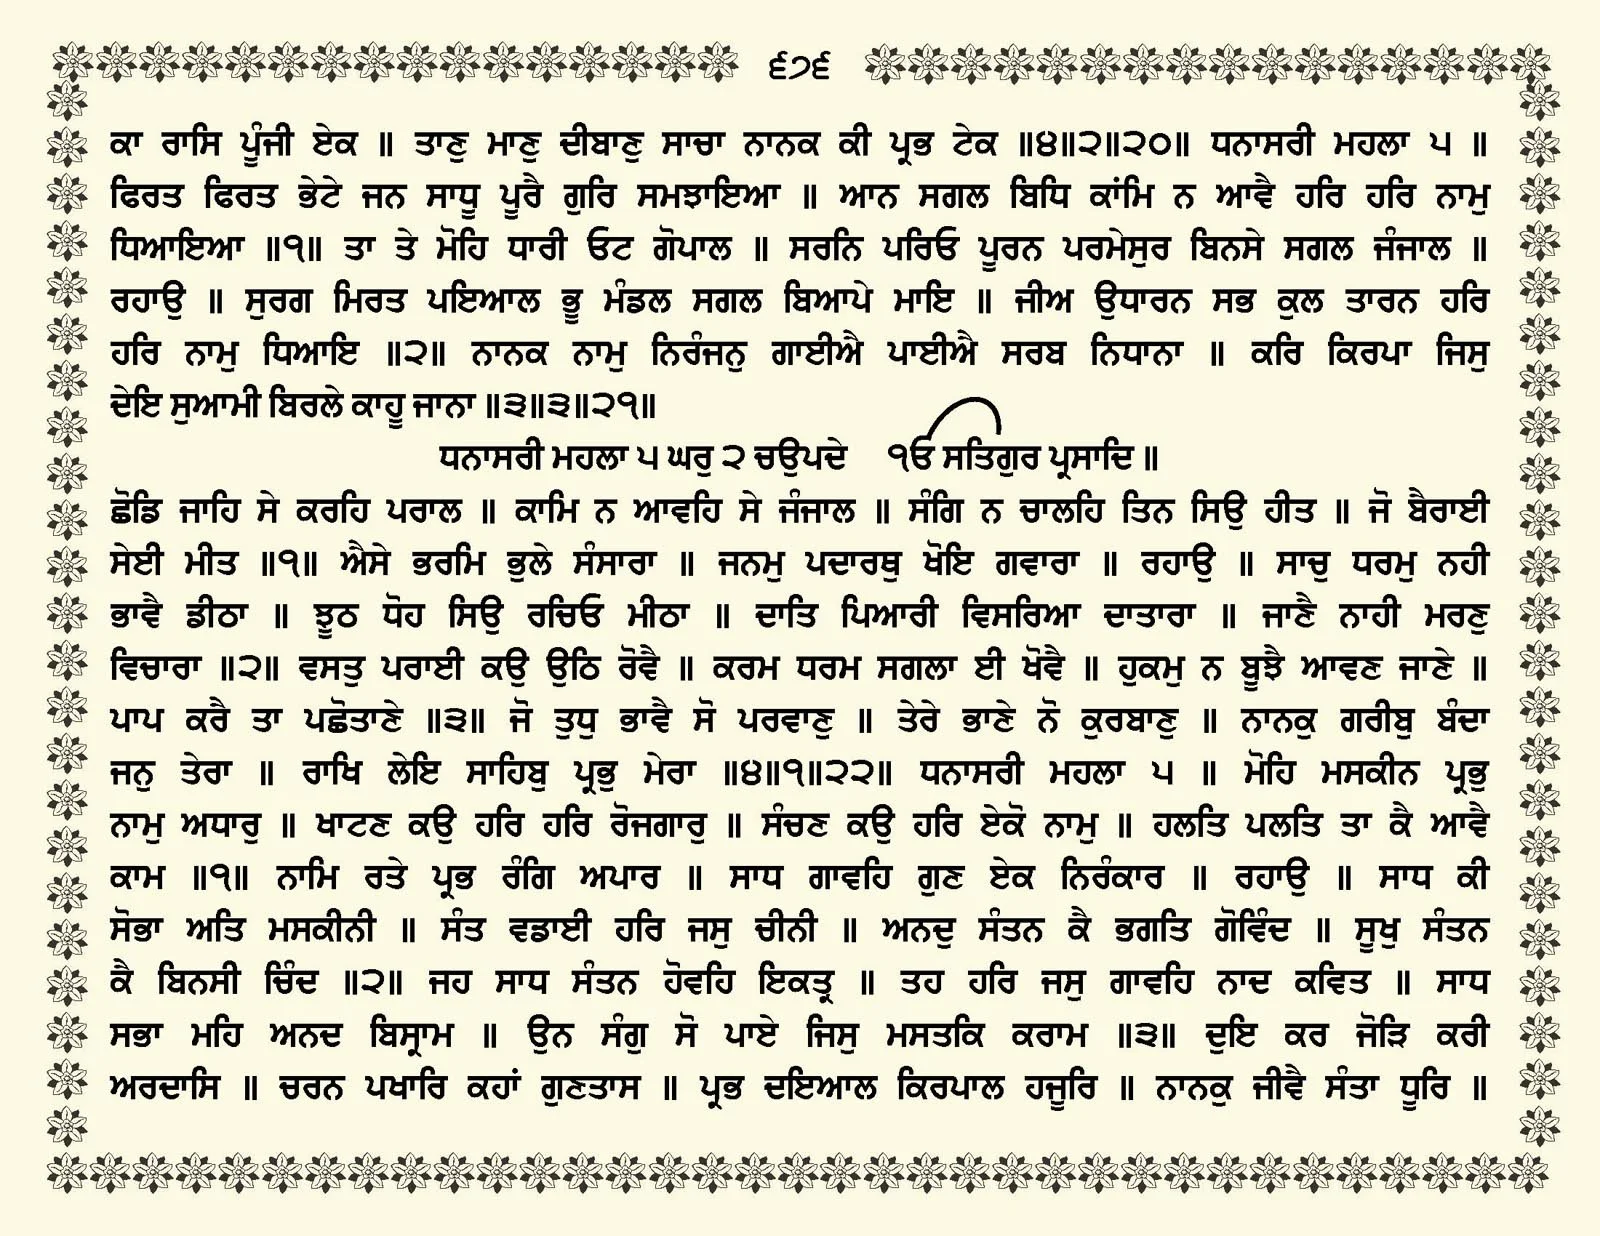 ੬੭੬
ਕਾ ਰਾਸਿ ਪੂੰਜੀ ਏਕ ॥ ਤਾਣੁ ਮਾਣੁ ਦੀਬਾਣੁ ਸਾਚਾ ਨਾਨਕ ਕੀ ਪ੍ਰਭ ਟੇਕ ॥੪॥੨॥੨੦॥ ਧਨਾਸਰੀ ਮਹਲਾ ੫ ॥
ਫਿਰਤ ਫਿਰਤ ਭੇਟੇ ਜਨ ਸਾਧੂ ਪੂਰੈ ਗੁਰਿ ਸਮਝਾਇਆ ॥ ਆਨ ਸਗਲ ਬਿਧਿ ਕਾਂਮਿ ਨ ਆਵੈ ਹਰਿ ਹਰਿ ਨਾਮੁ
ਧਿਆਇਆ ॥੧॥ ਤਾ ਤੇ ਮੋਹਿ ਧਾਰੀ ਓਟ ਗੋਪਾਲ ॥ ਸਰਨਿ ਪਰਿਓ ਪੂਰਨ ਪਰਮੇਸੁਰ ਬਿਨਸੇ ਸਗਲ ਜੰਜਾਲ ॥
ਰਹਾਉ ॥ ਸੁਰਗ ਮਿਰਤ ਪਇਆਲ ਭੂ ਮੰਡਲ ਸਗਲ ਬਿਆਪੇ ਮਾਇ ॥ ਜੀਅ ਉਧਾਰਨ ਸਭ ਕੁਲ ਤਾਰਨ ਹਰਿ
ਹਰਿ ਨਾਮੁ ਧਿਆਇ ॥੨॥ ਨਾਨਕ ਨਾਮੁ ਨਿਰੰਜਨੁ ਗਾਈਐ ਪਾਈਐ ਸਰਬ ਨਿਧਾਨਾ ॥ ਕਰਿ ਕਿਰਪਾ ਜਿਸੁ
ਦੇਇ ਸੁਆਮੀ ਬਿਰਲੇ ਕਾਹੂ ਜਾਨਾ ॥੩॥੩॥੨੧॥
ਧਨਾਸਰੀ ਮਹਲਾ ੫ ਘਰੁ ੨ ਚਉਪਦੇ ੴ ਸਤਿਗੁਰ ਪ੍ਰਸਾਦਿ ॥
ਛੋਡਿ ਜਾਹਿ ਸੇ ਕਰਹਿ ਪਰਾਲ ॥ ਕਾਮਿ ਨ ਆਵਹਿ ਸੇ ਜੰਜਾਲ ॥ ਸੰਗਿ ਨ ਚਾਲਹਿ ਤਿਨ ਸਿਉ ਹੀਤ ॥ ਜੋ ਬੈਰਾਈ
ਸੇਈ ਮੀਤ ॥੧॥ ਐਸੇ ਭਰਮਿ ਭੁਲੇ ਸੰਸਾਰਾ ॥ ਜਨਮੁ ਪਦਾਰਥੁ ਖੋਇ ਗਵਾਰਾ ॥ ਰਹਾਉ ॥ ਸਾਚੁ ਧਰਮੁ ਨਹੀ
ਭਾਵੈ ਡੀਠਾ ॥ ਝੂਠ ਧੋਹ ਸਿਉ ਰਚਿਓ ਮੀਠਾ ॥ ਦਾਤਿ ਪਿਆਰੀ ਵਿਸਰਿਆ ਦਾਤਾਰਾ ॥ ਜਾਣੈ ਨਾਹੀ ਮਰਣੁ
ਵਿਚਾਰਾ ॥੨॥ ਵਸਤੁ ਪਰਾਈ ਕਉ ਉਠਿ ਰੋਵੈ ॥ ਕਰਮ ਧਰਮ ਸਗਲਾ ਈ ਖੋਵੈ ॥ ਹੁਕਮੁ ਨ ਬੂਝੈ ਆਵਣ ਜਾਣੇ ॥
ਪਾਪ ਕਰੈ ਤਾ ਪਛੋਤਾਣੇ ॥੩॥ ਜੋ ਤੁਧੁ ਭਾਵੈ ਸੋ ਪਰਵਾਣੁ ॥ ਤੇਰੇ ਭਾਣੇ ਨੋ ਕੁਰਬਾਣੁ ॥ ਨਾਨਕੁ ਗਰੀਬੁ ਬੰਦਾ
ਜਨੁ ਤੇਰਾ ॥ ਰਾਖਿ ਲੇਇ ਸਾਹਿਬੁ ਪ੍ਰਭੁ ਮੇਰਾ ॥੪॥੧॥੨੨॥ ਧਨਾਸਰੀ ਮਹਲਾ ੫ ॥ ਮੋਹਿ ਮਸਕੀਨ ਪ੍ਰਭੁ
ਨਾਮੁ ਅਧਾਰੁ ॥ ਖਾਟਣ ਕਉ ਹਰਿ ਹਰਿ ਰੋਜਗਾਰੁ ॥ ਸੰਚਣ ਕਉ ਹਰਿ ਏਕੋ ਨਾਮੁ ॥ ਹਲਤਿ ਪਲਤਿ ਤਾ ਕੈ ਆਵੈ
ਕਾਮ ॥੧॥ ਨਾਮਿ ਰਤੇ ਪ੍ਰਭ ਰੰਗਿ ਅਪਾਰ ॥ ਸਾਧ ਗਾਵਹਿ ਗੁਣ ਏਕ ਨਿਰੰਕਾਰ ॥ ਰਹਾਉ ॥ ਸਾਧ ਕੀ
ਸੋਭਾ ਅਤਿ ਮਸਕੀਨੀ ॥ ਸੰਤ ਵਡਾਈ ਹਰਿ ਜਸੁ ਚੀਨੀ ॥ ਅਨਦੁ ਸੰਤਨ ਕੈ ਭਗਤਿ ਗੋਵਿੰਦ ॥ ਸੂਖੁ ਸੰਤਨ
ਕੈ ਬਿਨਸੀ ਚਿੰਦ ॥੨॥ ਜਹ ਸਾਧ ਸੰਤਨ ਹੋਵਹਿ ਇਕਤ੍ਰ ॥ ਤਹ ਹਰਿ ਜਸੁ ਗਾਵਹਿ ਨਾਦ ਕਵਿਤ ॥ ਸਾਧ
ਸਭਾ ਮਹਿ ਅਨਦ ਬਿਸ੍ਰਾਮ ॥ ਉਨ ਸੰਗੁ ਸੋ ਪਾਏ ਜਿਸੁ ਮਸਤਕਿ ਕਰਾਮ ॥੩॥ ਦੁਇ ਕਰ ਜੋੜਿ ਕਰੀ
ਅਰਦਾਸਿ ॥ ਚਰਨ ਪਖਾਰਿ ਕਹਾਂ ਗੁਣਤਾਸ ॥ ਪ੍ਰਭ ਦਇਆਲ ਕਿਰਪਾਲ ਹਜੂਰਿ ॥ ਨਾਨਕੁ ਜੀਵੈ ਸੰਤਾ ਧੂਰਿ ॥